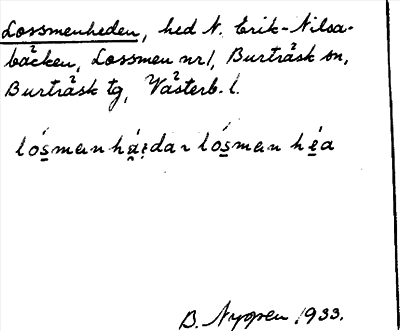 Lossmenheden, hed N. Erik-Nilsa-
bäcken, Lossmen nr 1, Burträsk sn,
Burträsk tg, Västerb. l.
lósmanháidan lósman héa
B. Nygren 1933.